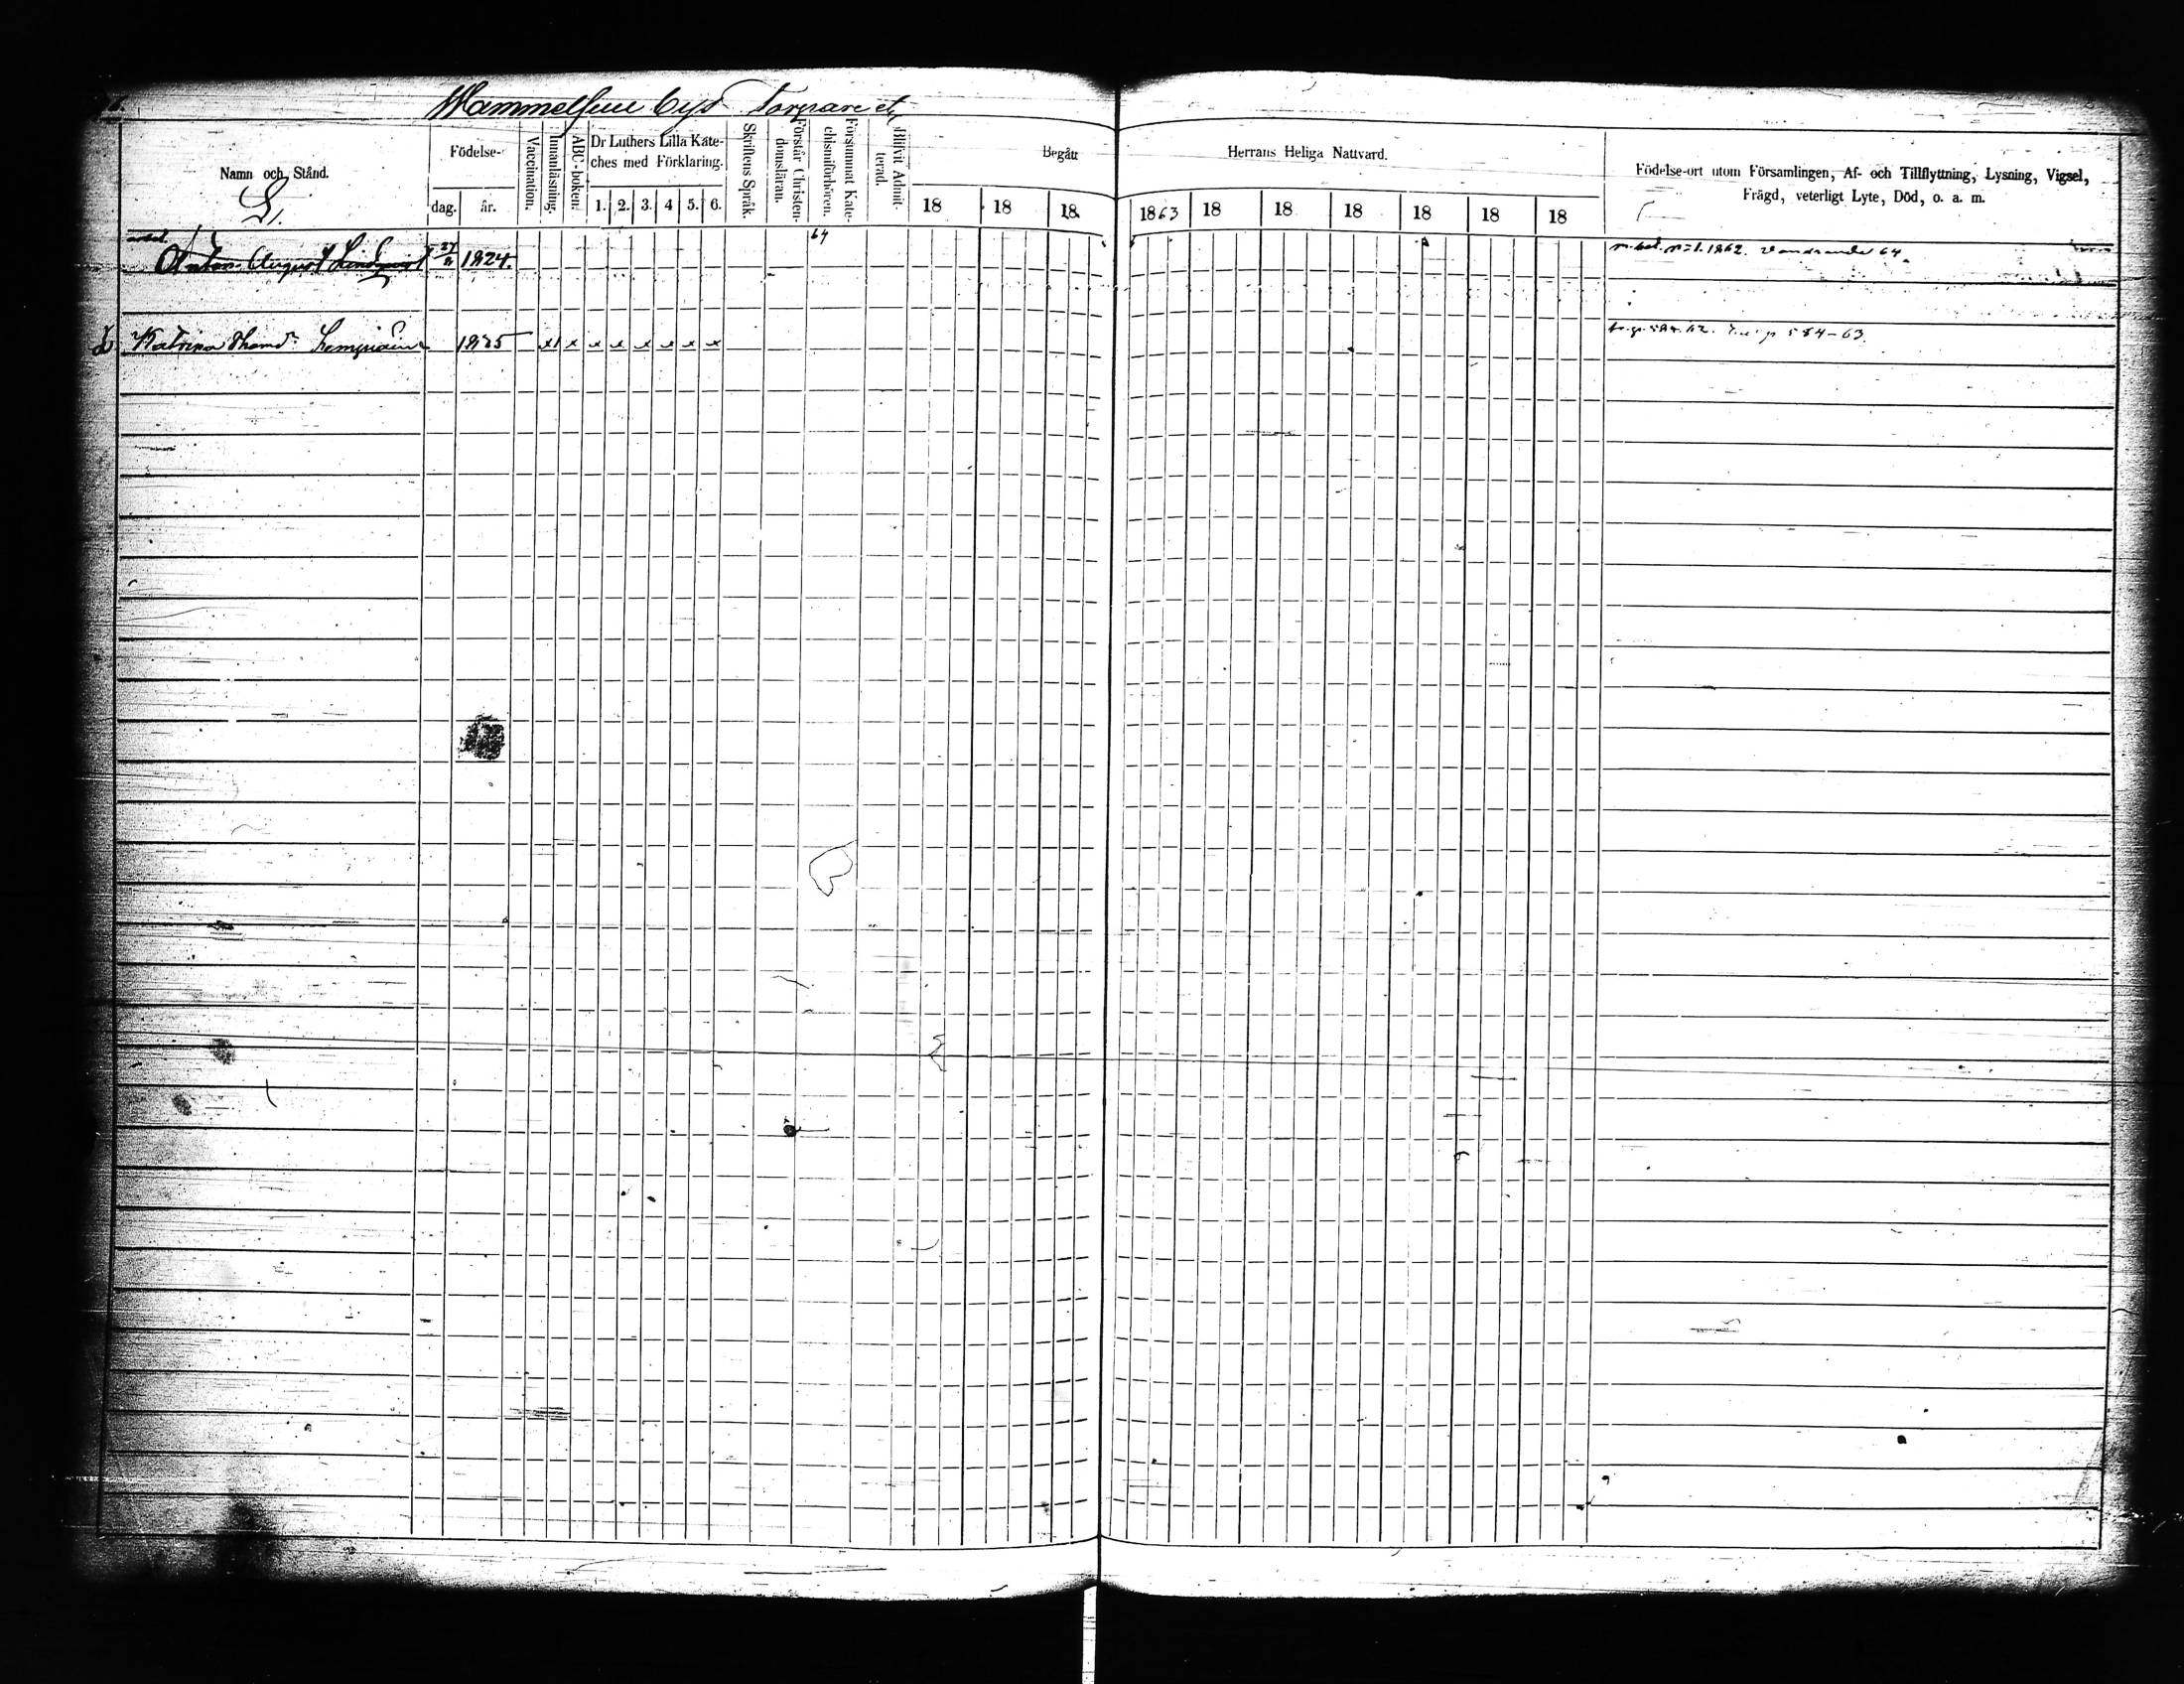 Torpare et
Namn och Stånd.
Födelse-
dag.
år.
Vaccination.
Innanläsning.
ABC-boken.
Dr Luthers Lilla Kate-
ches med Förklaring.
1. 2. 3. 4 5. 6.
Skriftens Språk.
Förstår Christen-
domsläran.
Försummat Kate-
chismiförhören.
Blifvit Admit-
terad.
Begått
Herrans Heliga Nattvard.
18 18 18. 1863 18 18 18 18 18 18
Födelse-ort utom Församlingen, Af- och Tillflyttning, Lysning, Vigsel,
Frägd, veterligt Lyte, Död, o. a. m.
Anton August Lindqvist 27/2 1824. 64 1862. 64.
Katrina 1835 x x x x x x x x 584-63.